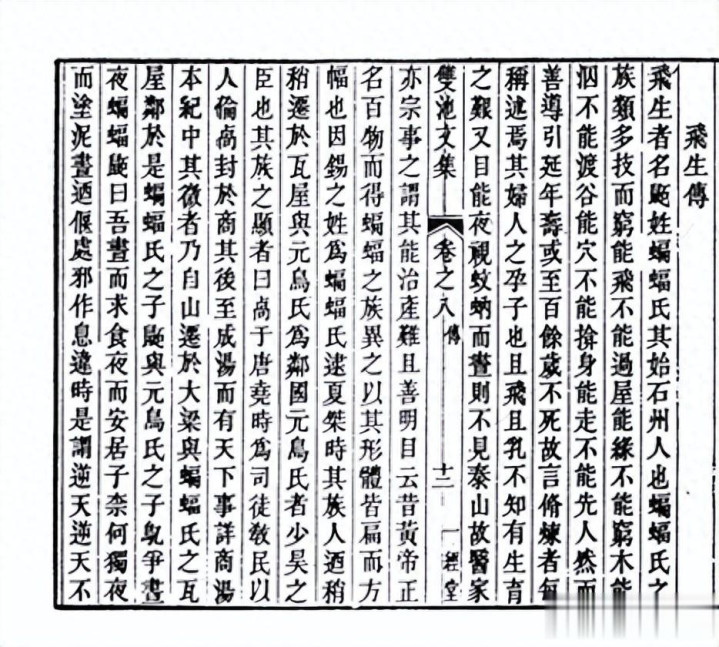 飛生傳
飛生者名姓蝙蝠氏其始石州人也蝙蝠氏之
族類多技而窮能飛不能過屋能緣不能窮木能
泅不能渡谷能穴不能揜身能走不能先人然而
善導引延年壽或至百餘歲不死故言脩煉者每
稱述焉其婦人之孕子也且飛且乳不知有生育
之艱又目能夜視蚊蚋而晝則不見泰山故醫家
雙池文集 卷之八 傳 十二 一經堂
亦宗事之謂其能治產難且善明目云昔黃帝正
名百物而得蝙蝠之族異之以其形體皆扁而方
幅也因錫之姓爲蝙蝠氏逮夏桀時其族人迺稍
稍遷於瓦屋與元鳥氏爲鄰國元鳥氏者少昊之
臣也其族之顯者曰卨于唐堯時爲司徒敎民以
人倫卨封於商其後至成湯而有天下事詳商湯
本紀中其微者乃自山遷於大梁與蝙蝠氏之瓦
屋鄰於是蝙蝠氏之子與元鳥氏之子鳦爭晝
夜蝙蝠曰吾晝而求食夜而安居子柰何獨夜
而塗泥晝迺偃處邪作息違時是謂逆天逆天不